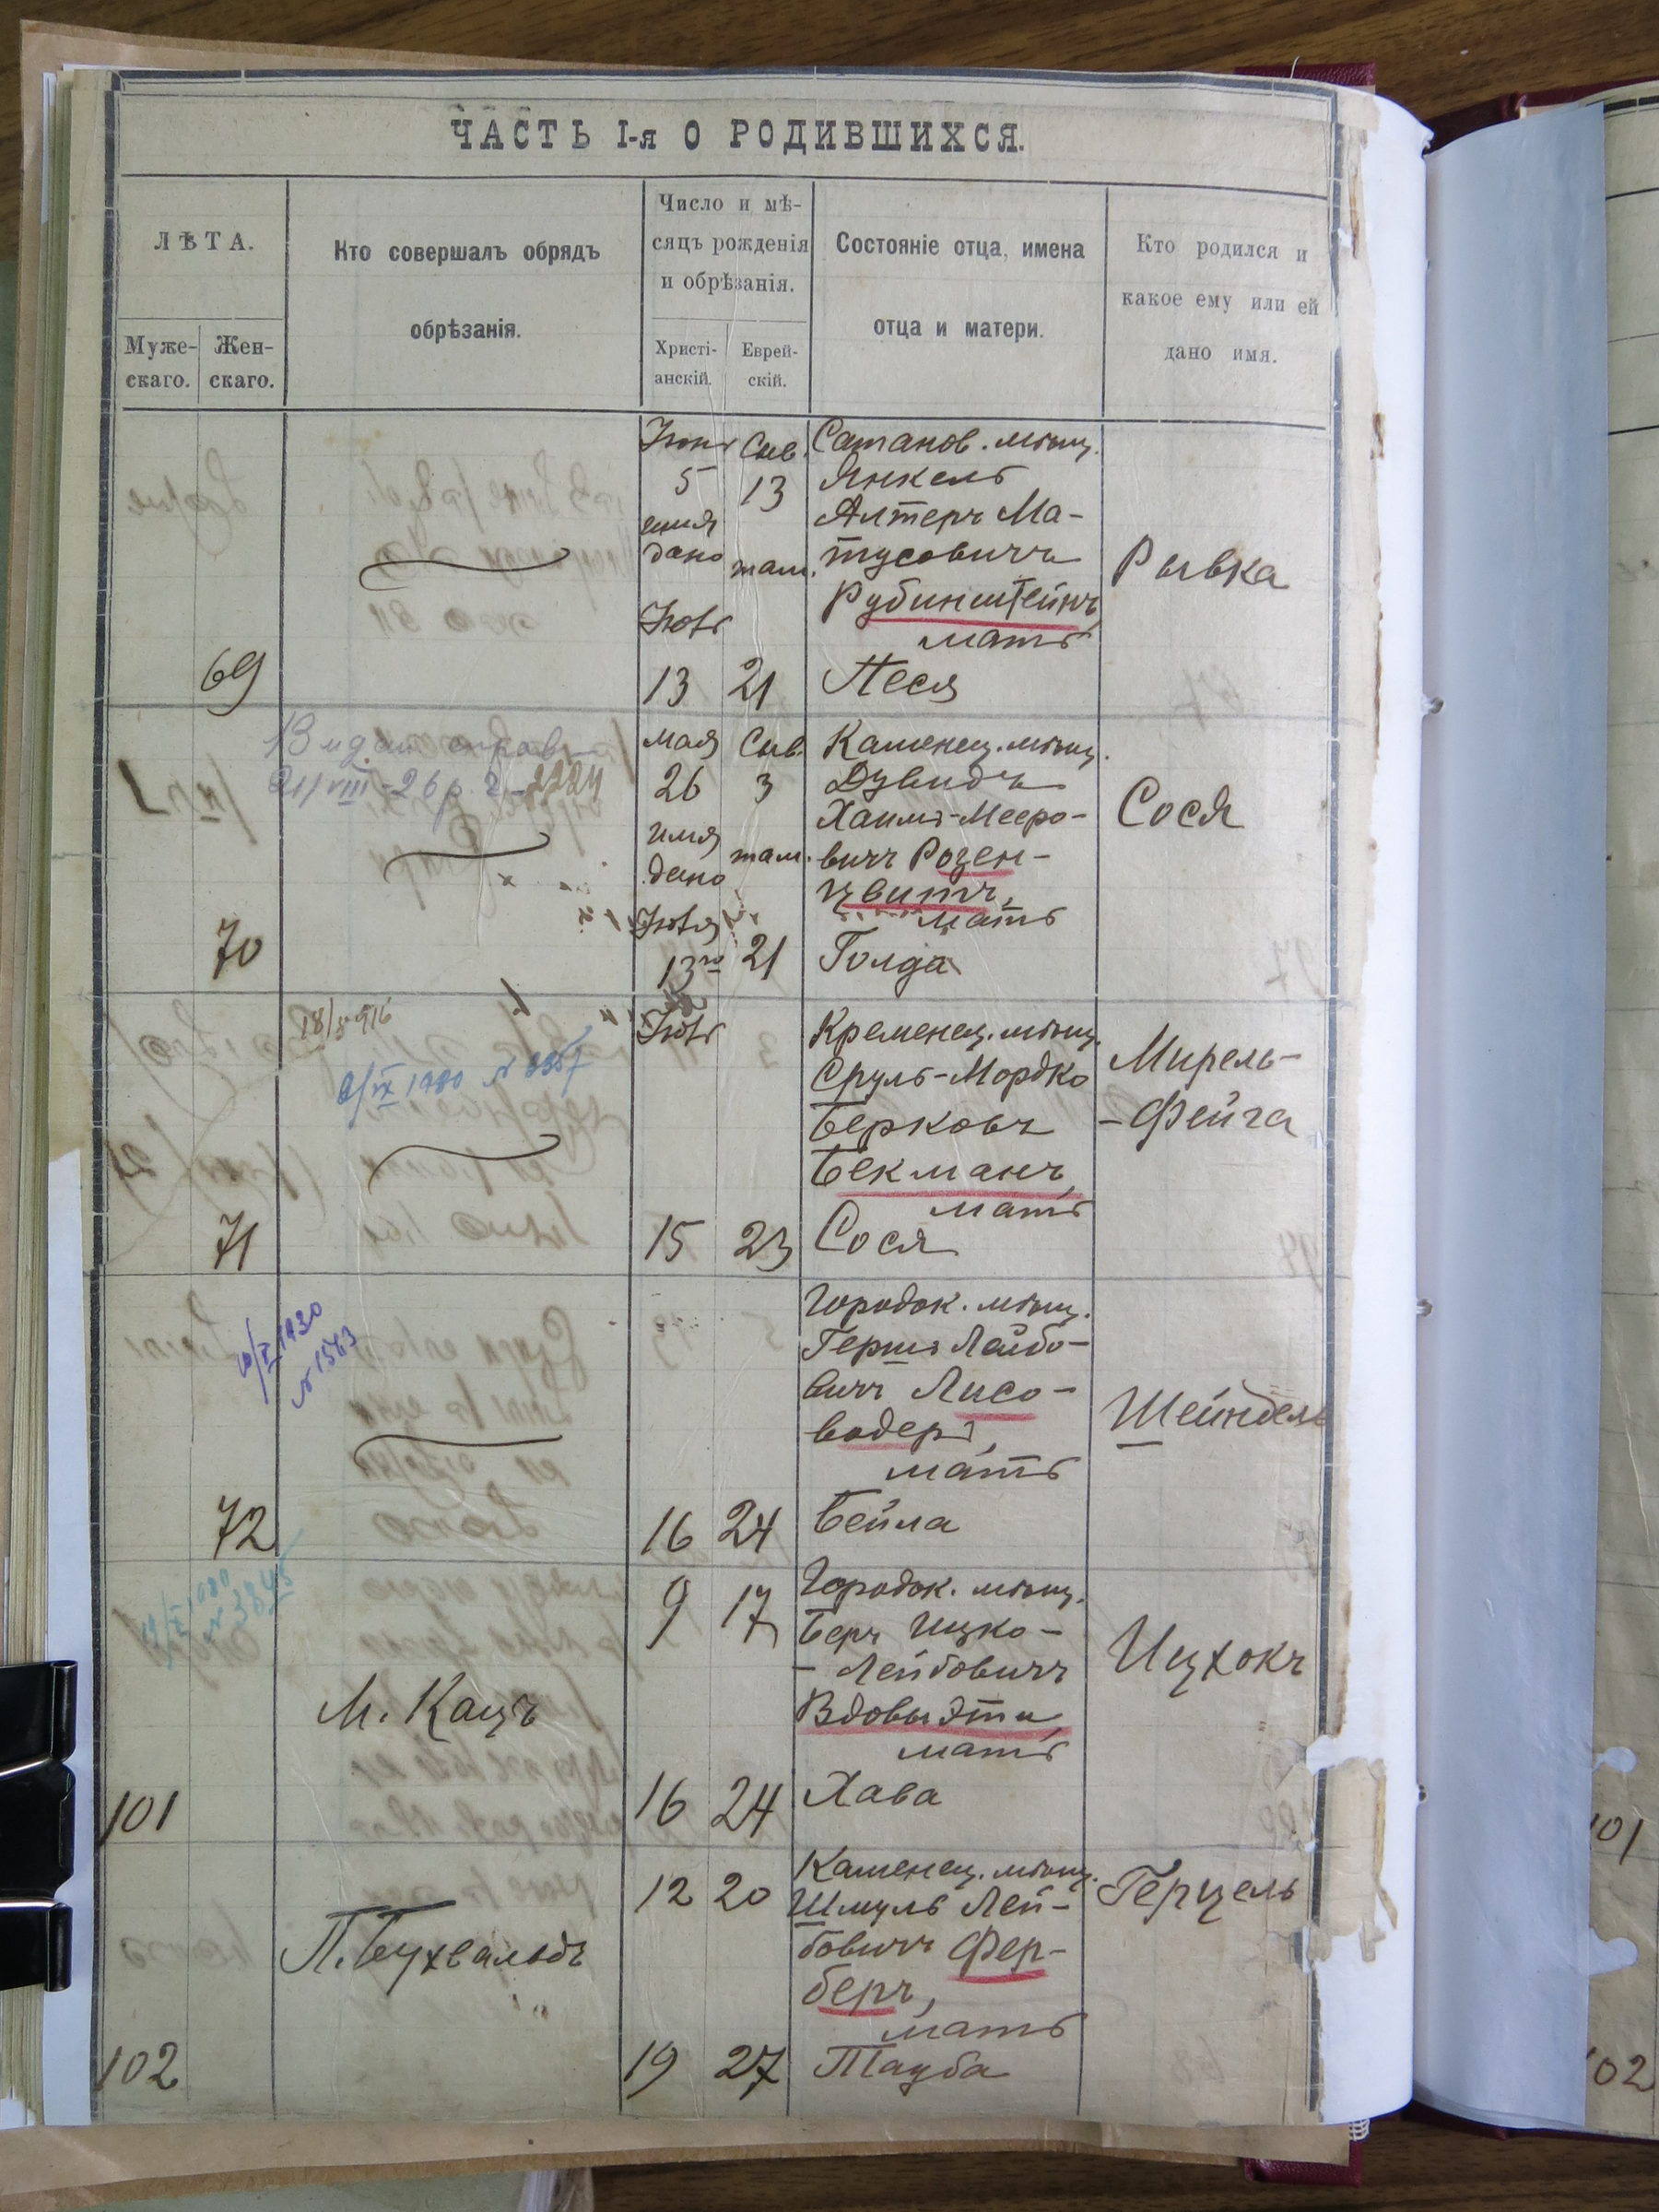 ЧАСТЬ I-я О РОДИВШИХСЯ.
ЛѢТА.
Муже-
скаго.
Жен-
скаго.
Кто совершалъ обрядъ
обрѣзанія.
Число и мѣ-
сяцъ рожденія
и обрѣзанія.
Христі-
анскій.
Еврей-
скій.
Состояніе отца, имена
отца и матери.
Кто родился и
какое ему или ей
дано имя.
69
5
13
имя
дано
там.
13
21
Сатанов. мѣщ.
Янкель
Алтеръ Ма-
тусовичъ
Рубинштейнъ,
мать
Песя
Рывка
70
21/VIII-26 р. 2224
мая
Сив.
26
3
имя
дано
там.
Іюля
13го
21
Каменец. мѣщ.
Дувидъ
Хаимъ-Мееро-
вичъ Розен-
цвитъ,
мать
Голда
Сося
71
15
23
Кременец. мѣщ.
Сруль-Мордко
Берковъ
Бекманъ,
мать
Сося
Мирель-
-Фейга
72
1930
№ 1563
16
24
Городок. мѣщ.
Гершъ Лейбо-
вичъ Лисо-
водеръ,
мать
Бейла
Шейндель
101
М. Кацъ
9
17
16
24
Городок. мѣщ.
Беръ Ицко-
-Лейбовичъ
Вдовы Эти,
мать
Хава
Ицхокъ
102
П. Бухвальдъ
12
20
19
27
Каменец. мѣщ.
Шмуль Лей-
бовичъ Фер-
беръ,
мать
Тауба
Герцель
101
102